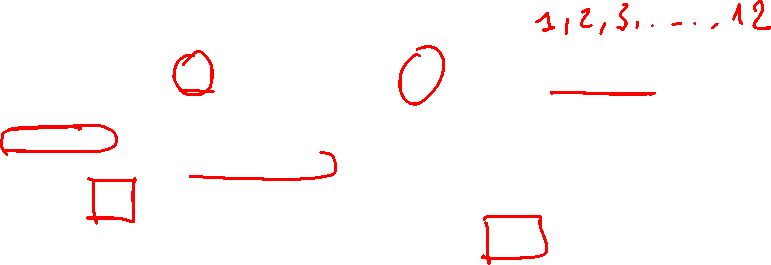 1, 2, 3, . - - . , 12